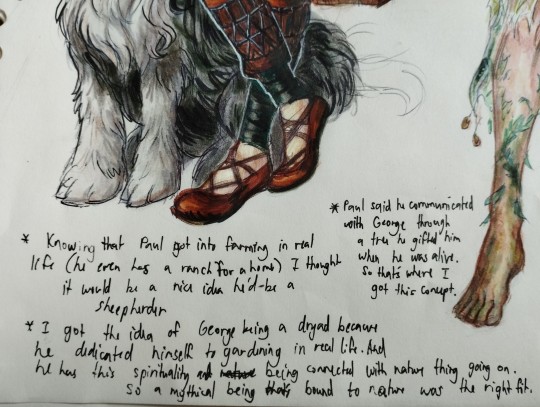 * Knowing that Paul got into farming in real
life (he even has a ranch for a home) I thought
it would be a nice idea he'd be a
sheepherder
* Paul said he communicated
with George through
a tree he gifted him
when he was alive.
So that's where I
got this concept.
* I got the idea of George being a dryad because
he dedicated himself to gardening in real life. And
he has this spirituality being connected with nature thing going on.
So a mythical being bound to nature was the right fit.